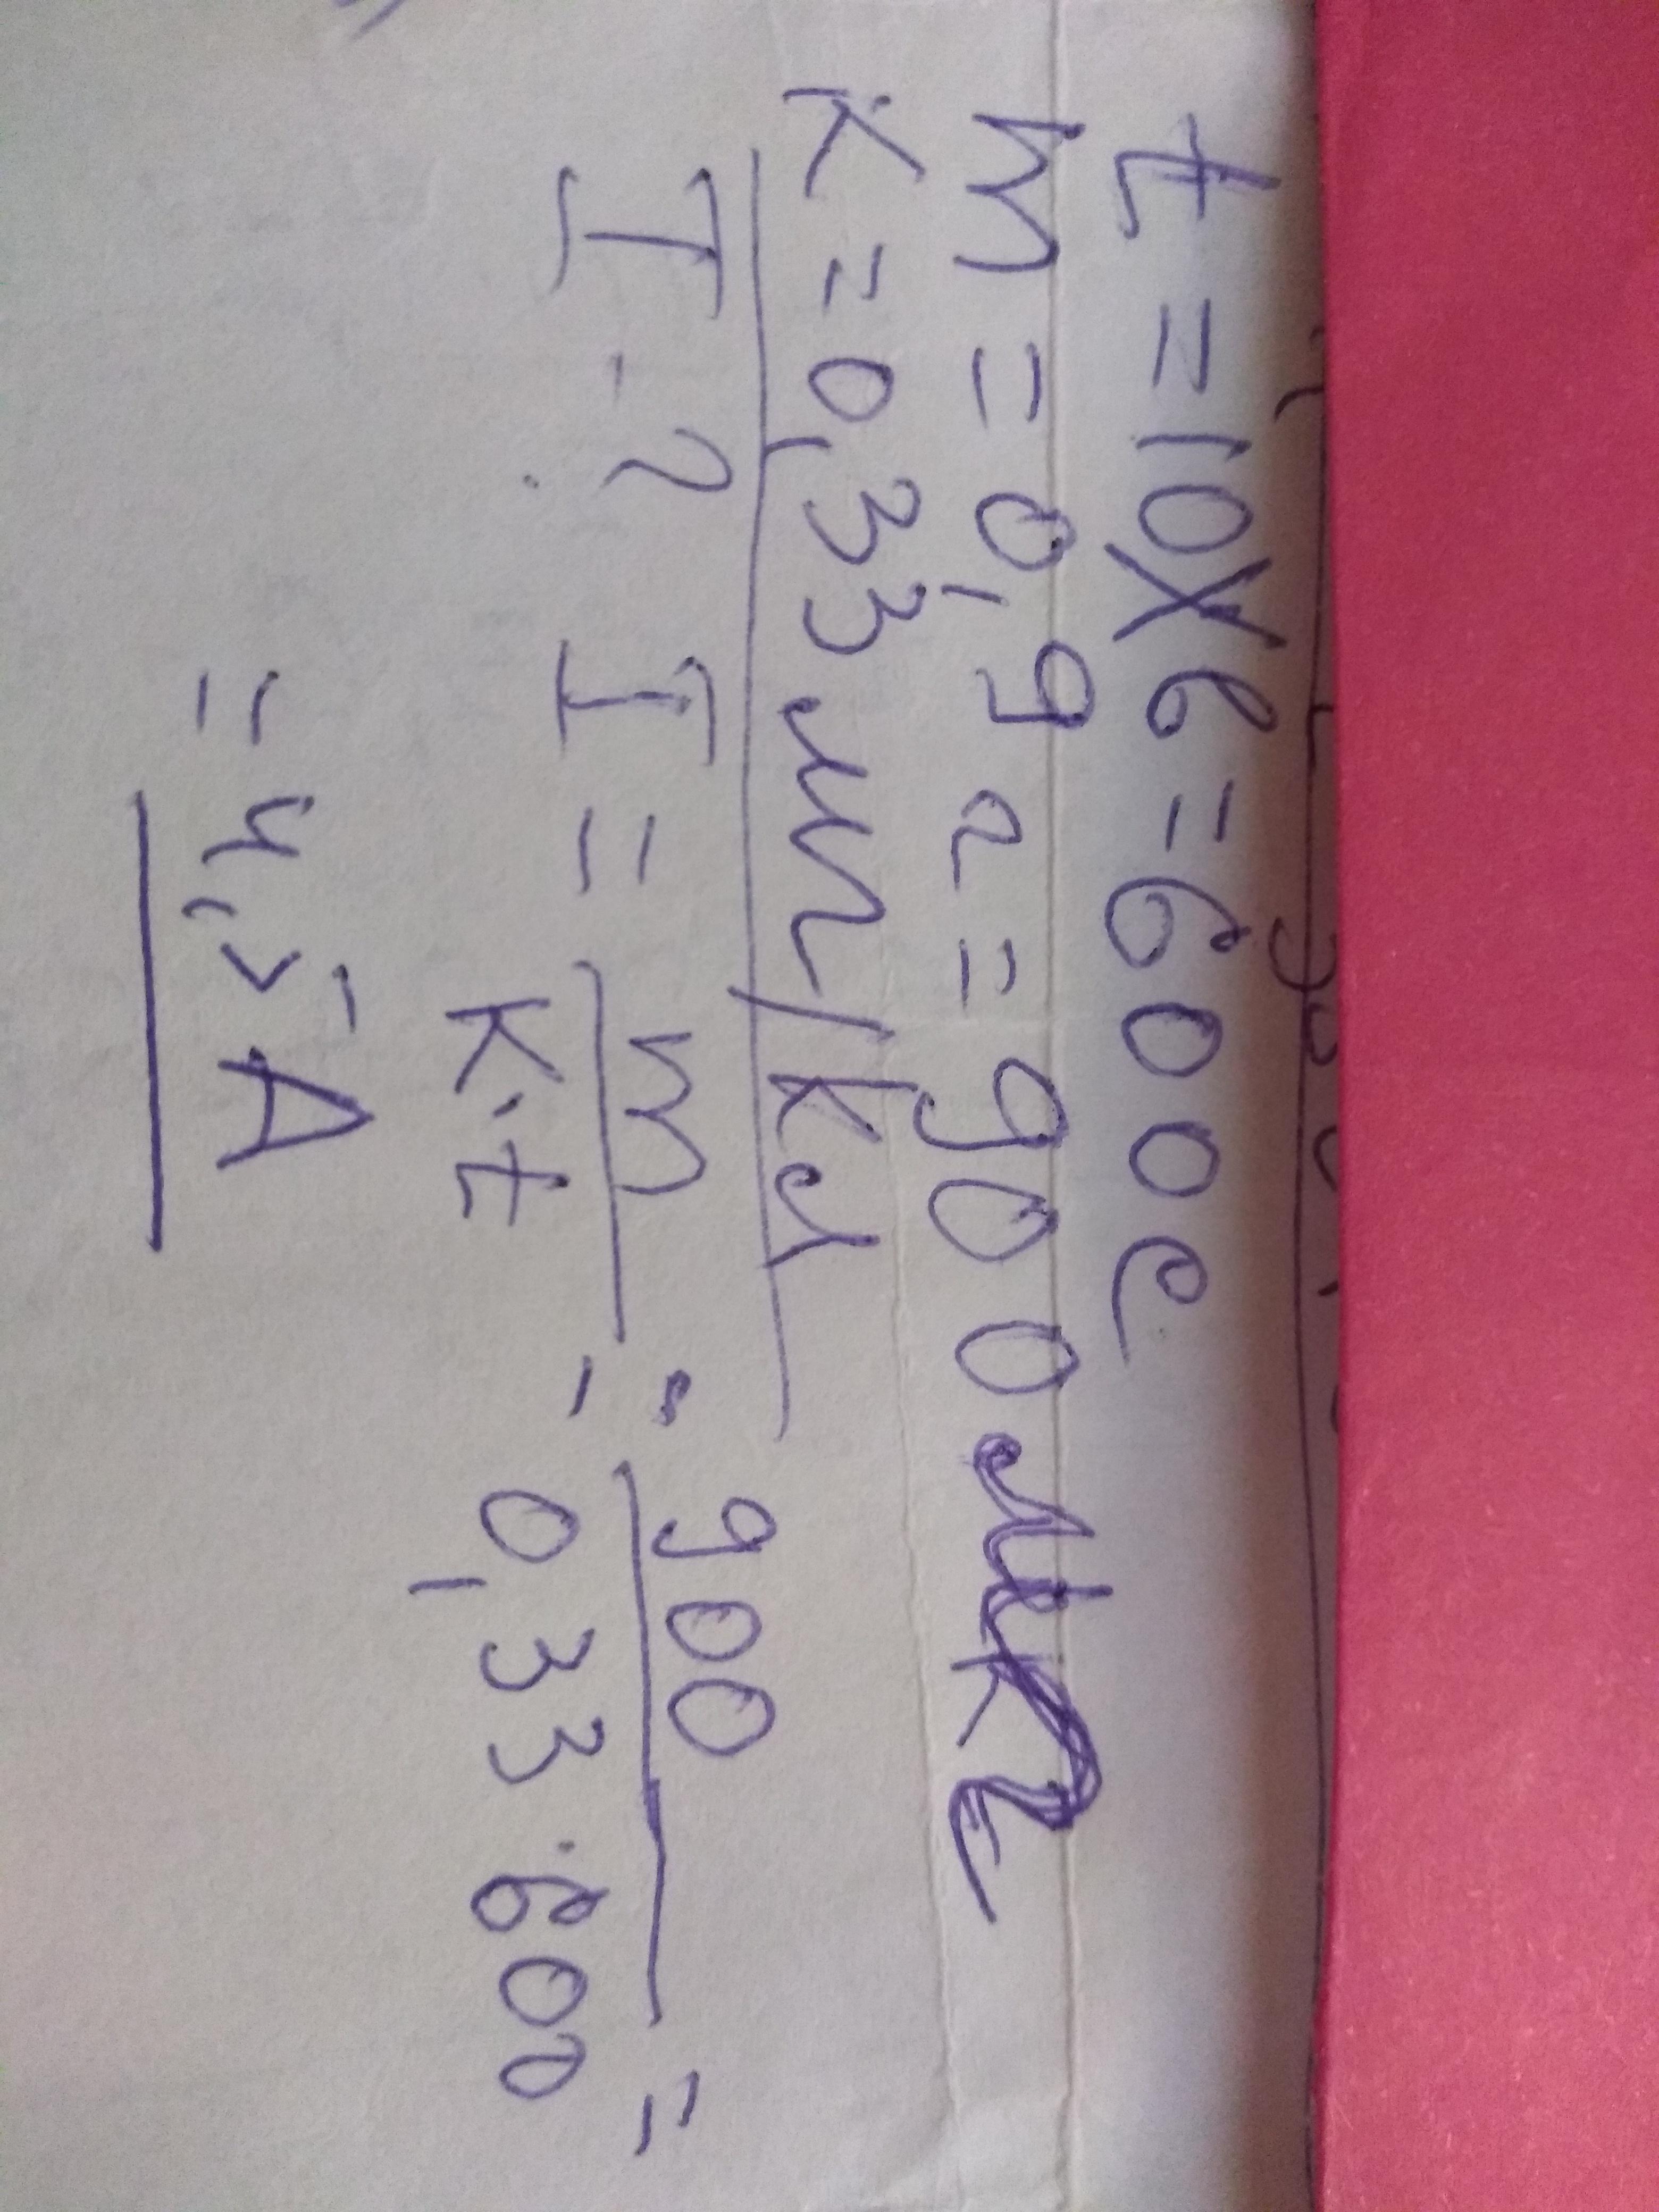 t = 10 х 6 = 600 с
m = 0,9 г = 900 мкг
к = 0,33 мг/кл
I - ?   I = m / к·t = 900 / 0,33·600 =
= 4,5 А